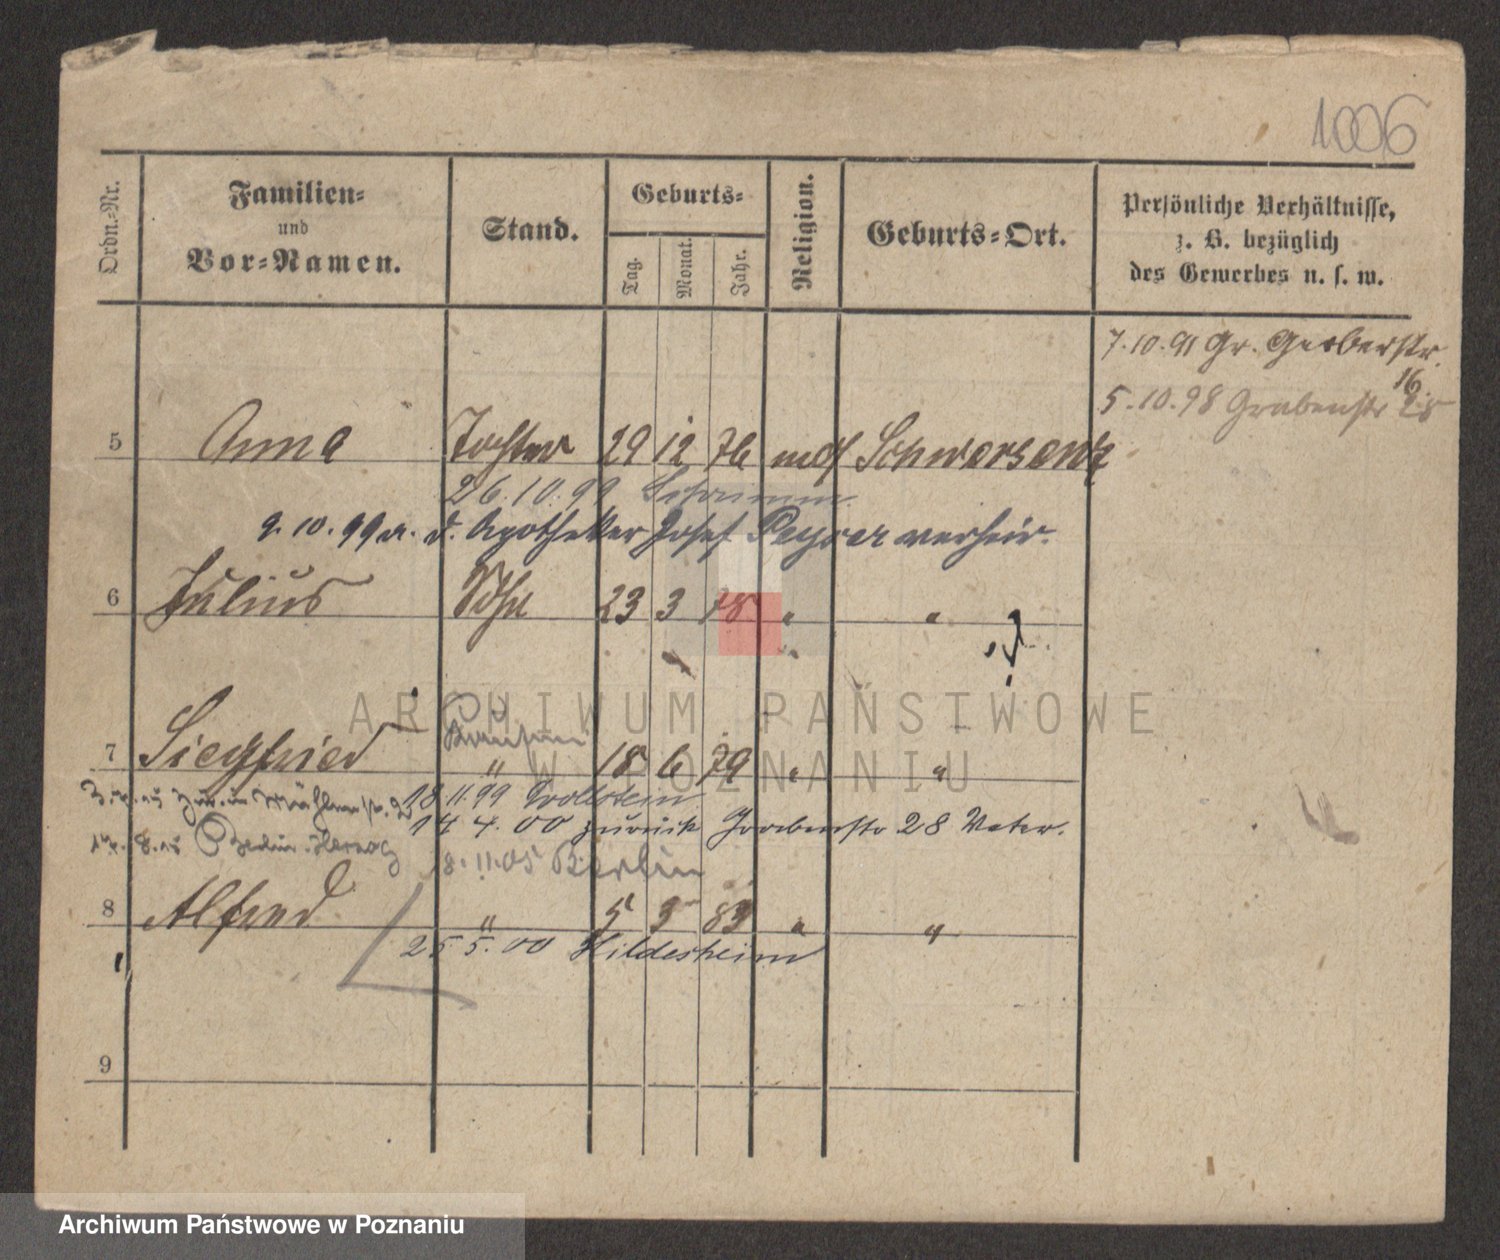 1006
Ordn.-Nr.
Familien-
und
Vor-Namen.
Stand.
Geburts-
Tag.
Monat.
Jahr.
Religion.
Geburts-Ort.
Persönliche Verhältnisse,
z. B. bezüglich
des Gewerbes u. s. w.
7.10.91 Gr. Gerberstr.
16
5.10.98 Grabenstr 28
5 Anna Tochter 29 12 76 mos Schwersenz
26.10.99 Schrimm
9.10.99 a. d. Apotheker Josef verheir.
6 Julius Sohn 23 3 78 " "
7 Siegfried " 18 6 79 " "
18 11 99 Wollstein
14 4.00 zurück Grabenstr 28 Vater.
Berlin Herzog
8.11.05 Berlin
8 Alfred " 5 3 83 " "
25 5.00 Hildesheim
9
ARCHIWUM PAŃSTWOWE
W POZNANIU
Archiwum Państwowe w Poznaniu